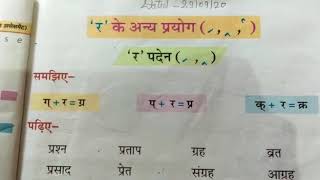 29/09/20
'र' के अन्य प्रयोग (
'र' पदेन (
समझिए–
ग् + र = ग्र   प् + र = प्र   क् + र = क्र
पढ़िए–
प्रश्न   प्रताप   ग्रह   व्रत
प्रसाद   प्रेत   संग्रह   आग्रह